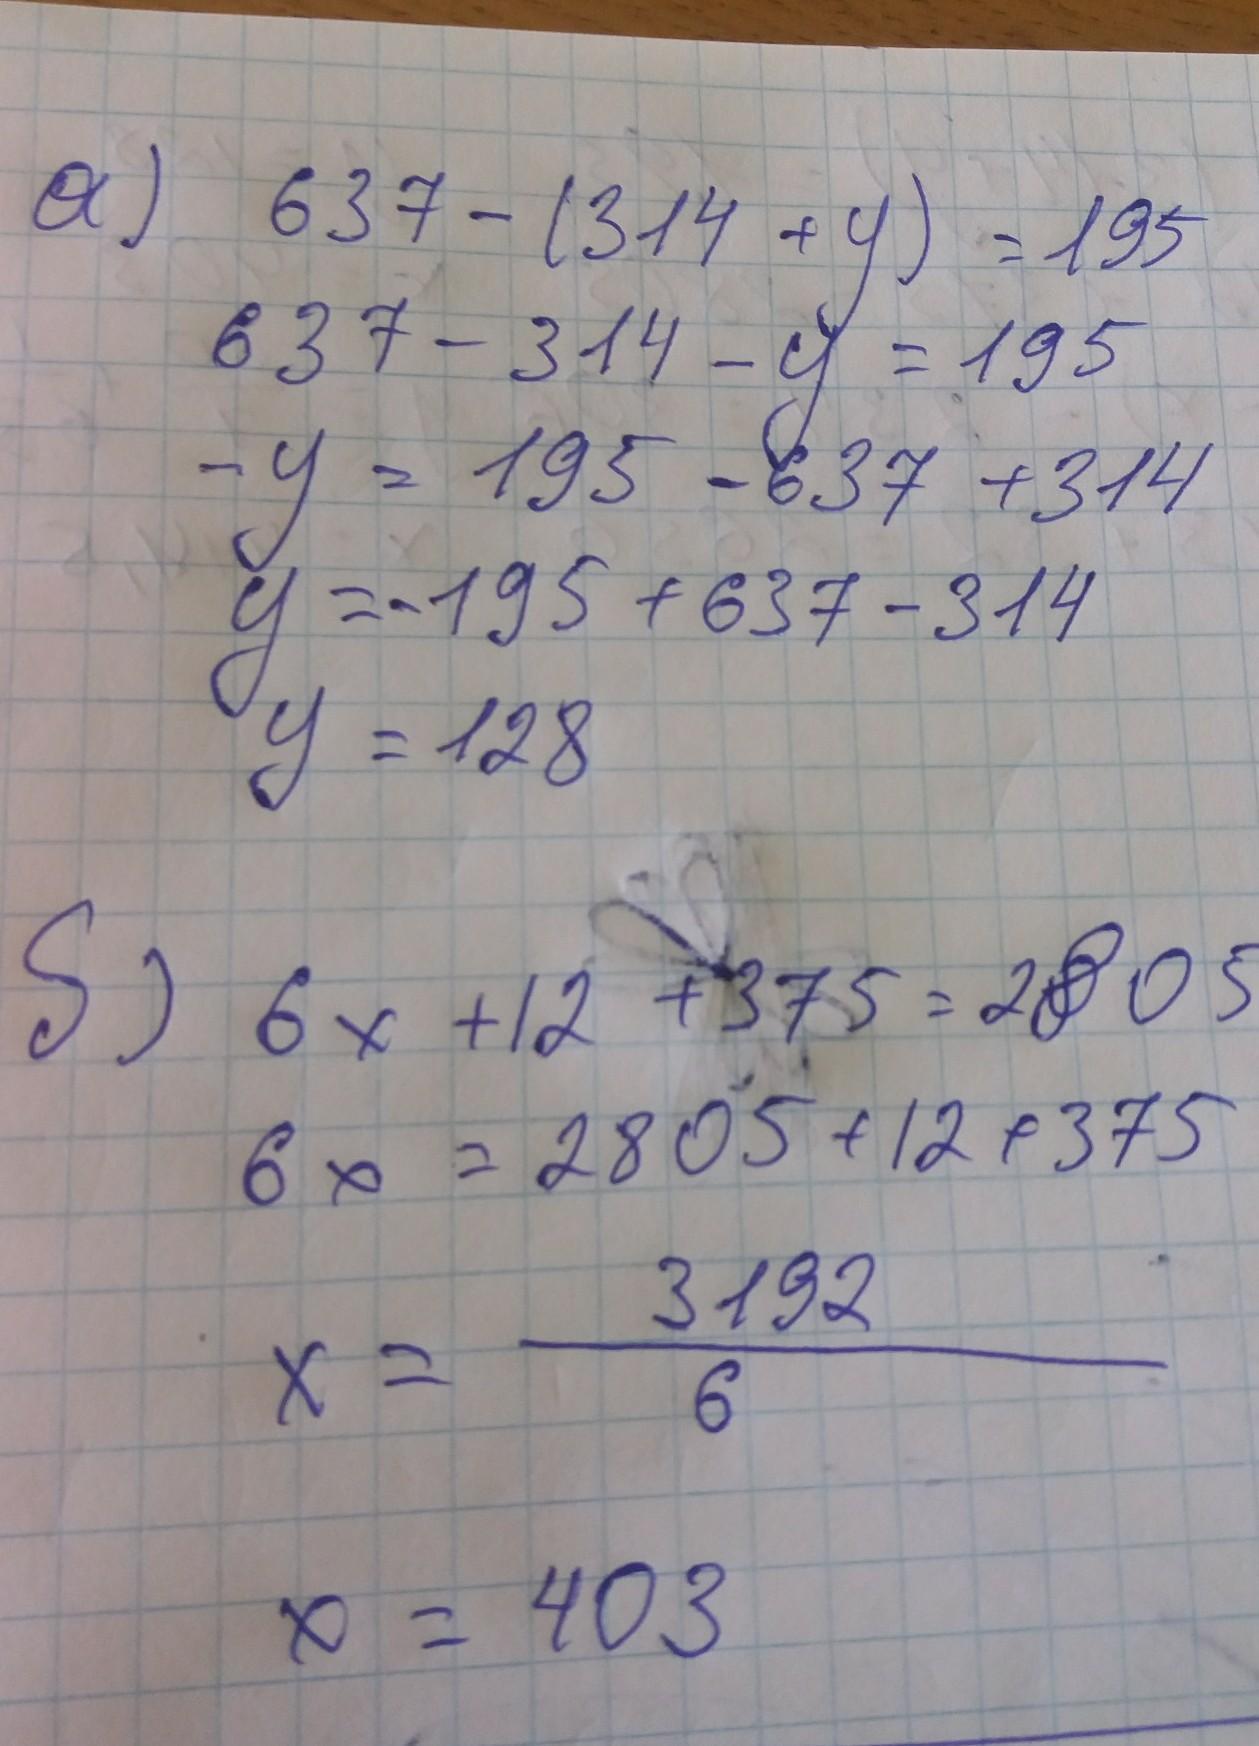 а) 637 - (314 + y) = 195
637 - 314 - y = 195
-y = 195 - 637 + 314
y = -195 + 637 - 314
y = 128
б) 6x + 12 + 375 = 2805
6x = 2805 + 12 + 375
x = 3192 / 6
x = 403